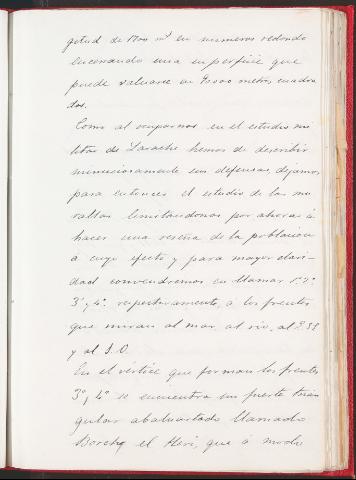 gitud de 1700 mt en numeros redondo
encerrando una superficie que
puede valuarse en metros cuadra
dos.
Como al ocuparnos en el estudio mi
litar de Larache hemos de describir
minuciosamente sus defensas, dejamos
para entonces el estudio de las mu
rallas limitandonos por ahora á
hacer una reseña de la poblacion
á cuyo efecto y para mayor clari-
dad convendremos en llamar 1º, 2º,
3º y 4º respectivamente, á los frentes
que miran al mar, al rio, al
y al S.O.
En el vértice que forman los frentes
3º y 4º se encuentra un fuerte trian
gular abaluartado llamado
el que á modo